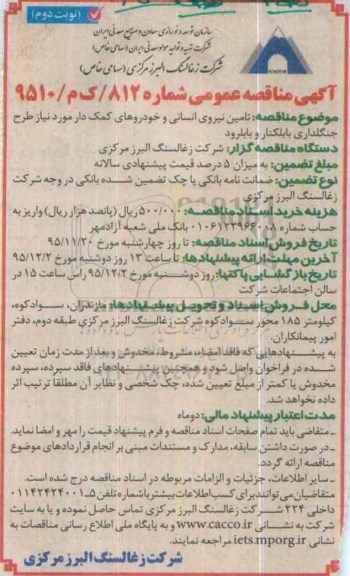 (نوبت دوم)
سازمان توسعه و نوسازی معادن و صنایع معدنی ایران
شرکت تهیه و تولید مواد معدنی ایران (سهامی خاص)
شرکت زغالسنگ البرز مرکزی (سهامی خاص)
آگهی مناقصه عمومی شماره ۸۱۲/ک م/۹۵۱۰
موضوع مناقصه: تامین نیروی انسانی و خودروهای کمک دار مورد نیاز طرح
جنگلداری بابلکنار و بابلرود
دستگاه مناقصه گزار: شرکت زغالسنگ البرز مرکزی
مبلغ تضمین: به میزان ۵ درصد قیمت پیشنهادی سالانه
نوع تضمین: ضمانت نامه بانکی یا چک تضمین شده بانکی در وجه شرکت
زغالسنگ البرز مرکزی
هزینه خرید اسناد مناقصه: ۵۰۰/۰۰۰ ریال (پانصد هزار ریال) واریز به
حساب شماره ۰۱۰۶۱۲۳۹۶۶۰۰۸ بانک ملی شعبه آزادمهر
تاریخ فروش اسناد مناقصه: تا روز چهارشنبه مورخ ۹۵/۱۱/۲۰
آخرین مهلت ارائه پیشنهادها: تا ساعت ۱۳ روز دوشنبه مورخ ۹۵/۱۲/۲
تاریخ بازگشایی پاکتها: روز دوشنبه مورخ ۹۵/۱۲/۲ راس ساعت ۱۵ در
سالن اجتماعات شرکت
محل فروش اسناد و تحویل پیشنهادها: مازندران، سوادکوه،
کیلومتر ۱۸۵ محور سوادکوه شرکت زغالسنگ البرز مرکزی طبقه دوم، دفتر
امور پیمانکاران.
به پیشنهادهایی که فاقد امضاء، مشروط، مخدوش و بعد از مدت زمان تعیین
شده در فراخوان واصل شود و همچنین پیشنهادهای فاقد سپرده، سپرده
مخدوش یا کمتر از مبلغ تعیین شده، چک شخصی و نظایر آن مطلقا ترتیب اثر
داده نخواهد شد.
مدت اعتبار پیشنهاد مالی: دو ماه
ـ متقاضی باید تمام صفحات اسناد مناقصه و فرم پیشنهاد قیمت را مهر و امضا نماید.
ـ در صورت داشتن سابقه، مدارک و مستندات مبنی بر انجام قراردادهای موضوع
مناقصه ارائه گردد.
ـ سایر اطلاعات، جزئیات و الزامات مربوطه در اسناد مناقصه درج شده است.
متقاضیان می توانند برای کسب اطلاعات بیشتر با شماره تلفن ۵ـ۰۱۱۴۲۴۲۴۰۰۱
داخلی ۲۲۴ شرکت زغالسنگ البرز مرکزی تماس حاصل نموده و یا به سایت
شرکت به نشانی www.cacco.ir و به پایگاه ملی اطلاع رسانی مناقصات به
نشانی iets.mporg.ir مراجعه نمایند.
شرکت زغالسنگ البرز مرکزی